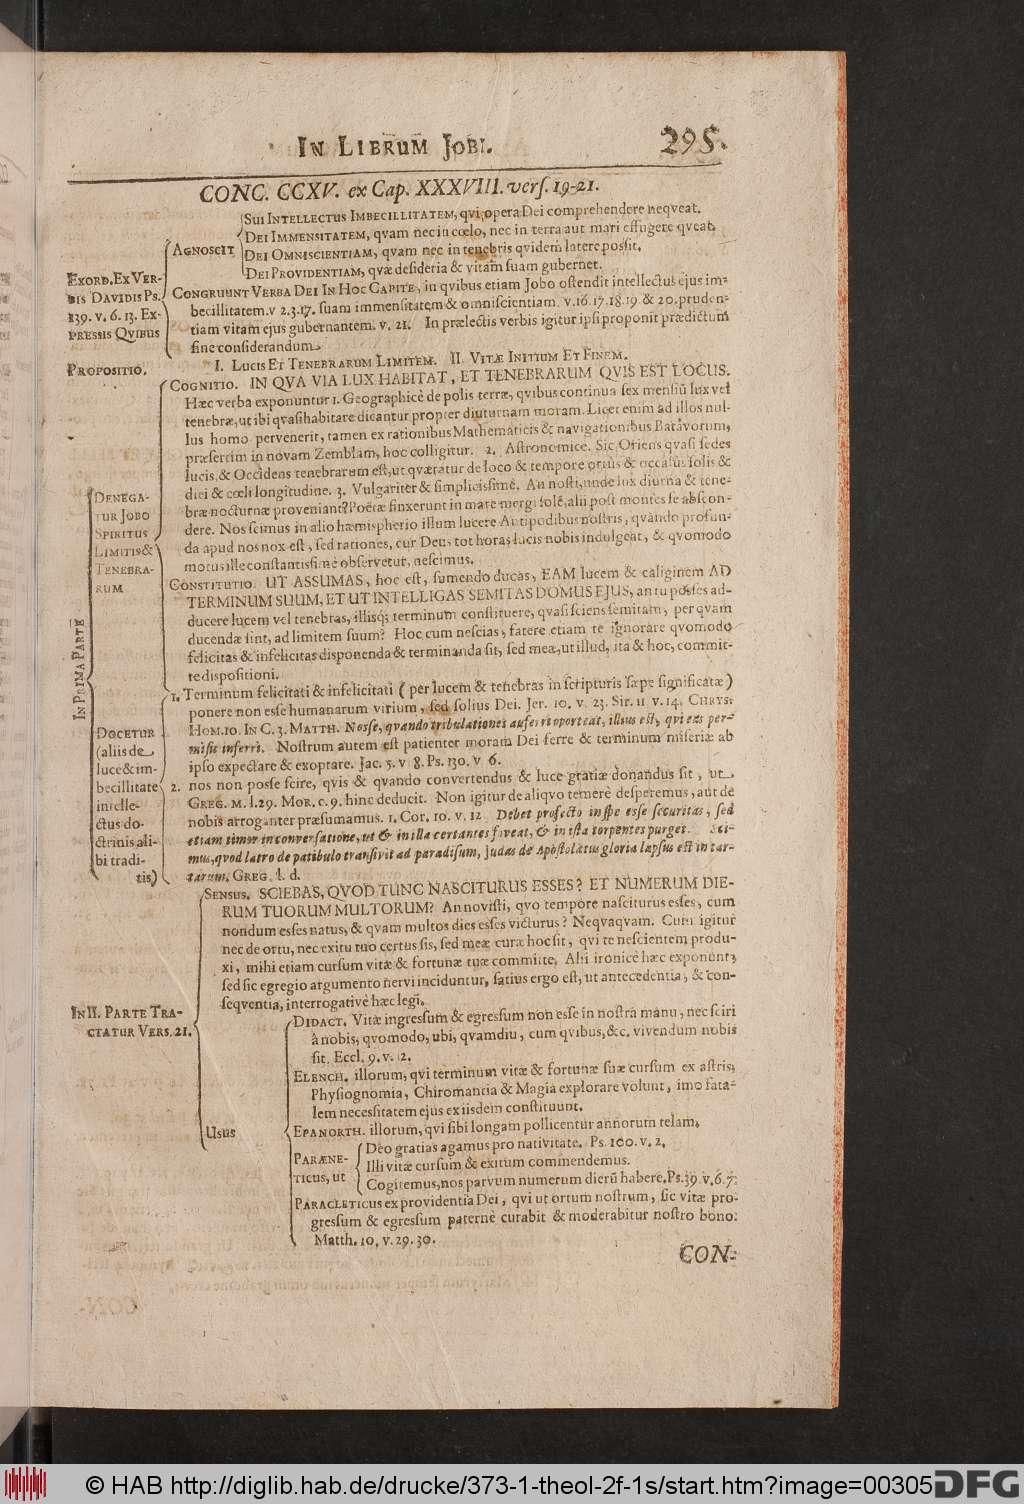 IN LIBRUM JOBI. 295.
CONC. CCXV. ex Cap. XXXVIII. vers. 19-21.
EXORD. EX VER-
BIS DAVIDIS PS.
139. v. 6. 13. EX-
PRESSIS QVIBUS
AGNOSCIT
SUI INTELLECTUS IMBECILLITATEM, qvi opera Dei comprehendere neqveat.
DEI IMMENSITATEM, qvam nec in cœlo, nec in terra aut mari effugere qveat.
DEI OMNISCIENTIAM, qvam nec in tenebris qvidem latere possit.
DEI PROVIDENTIAM, qvæ desideria & vitam suam gubernet.
CONGRUUNT VERBA DEI IN HOC CAPITE, in qvibus etiam Jobo ostendit intellectus ejus im-
becillitatem. v 2.3.17. suam immensitatem & omniscientiam. v. 16. 17. 18. 19 & 20. pruden-
tiam vitam ejus gubernantem. v. 21. In prælectis verbis igitur ipsi proponit prædictum
sine considerandum
PROPOSITIO.
I. LUCIS ET TENEBRARUM LIMITEM. II. VITÆ INITIUM ET FINEM.
IN PRIMA PARTE
DENEGA-
TUR JOBO
SPIRITUS
LIMITIS &
TENEBRA-
RUM
COGNITIO. IN QVA VIA LUX HABITAT, ET TENEBRARUM QVIS EST LOCUS.
Hæc verba exponuntur 1. Geographicè de polis terræ, qvibus continua sex mensiū lux vel
tenebræ, ut ibi qvasi habitare dicantur propter diuturnam moram. Licet enim ad illos nul-
lus homo pervenerit, tamen ex rationibus Mathematicis & navigationibus Batavorum,
præsertim in novam Zemblam, hoc colligitur. 2. Astronomice. Sic Oriens qvasi sedes
lucis, & Occidens tenebrarum est, ut qværatur de loco & tempore ortus & occasus solis &
diei & cœli longitudine. 3. Vulgariter & simplicissimè. An nosti, unde lux diurna & tene-
bræ nocturnæ proveniant? Poëtæ finxerunt in mare mergi solē, alii post montes se abscon-
dere. Nos scimus in alio hæmispherio illum lucere Antipodibus nostris, qvando profun-
da apud nos nox est, sed rationes, cur Deus tot horas lucis nobis indulgeat, & qvomodo
motus ille constantissimè observetur, nescimus.
CONSTITUTIO. UT ASSUMAS, hoc est, sumendo ducas, EAM lucem & caliginem AD
TERMINUM SUUM, ET UT INTELLIGAS SEMITAS DOMUS EJUS, an tu posses ad-
ducere lucem vel tenebras, illisq; terminum constituere, qvasi sciens semitam, per qvam
ducendæ sint, ad limitem suum? Hoc cum nescias, fatere etiam te ignorare qvomodo
felicitas & infelicitas disponenda & terminanda sit, sed meæ, ut illud, ita & hoc, commit-
te dispositioni.
DOCETUR
(aliis de
luce & im-
becillitate
intelle-
ctus do-
ctrinis ali-
bi tradi-
tis)
1. Terminum felicitati & infelicitati (per lucem & tenebras in scripturis sæpe significatæ)
ponere non esse humanarum virium, sed solius Dei. Jer. 10. v. 23. Sir. 11 v. 14. CHRYS.
HOM. 10. IN C. 3. MATTH. Nosse, qvando tribulationes auferri oporteat, illius est, qvi eas per-
misit inferri. Nostrum autem est patienter moram Dei ferre & terminum miseriæ ab
ipso expectare & exoptare. Jac. 5. v 8. Ps. 130. v 6.
2. nos non posse scire, qvis & qvando convertendus & luce gratiæ donandus sit, ut
GREG. M. l. 29. MOR. c. 9. hinc deducit. Non igitur de aliqvo temerè desperemus, aut de
nobis arroganter præsumamus. 1. Cor. 10. v. 12 Debet profecto in spe esse securitas, sed
etiam timor in conversatione, ut & in illa certantes foveat, & in ista torpentes purget. Sci-
mus, qvod latro de patibulo transivit ad paradisum, Judas de Apostolatus gloria lapsus est in tar-
tarum. GREG. l. d.
IN II. PARTE TRA-
CTATUR VERS. 21.
SENSUS. SCIEBAS, QVOD TUNC NASCITURUS ESSES? ET NUMERUM DIE-
RUM TUORUM MULTORUM? An novisti, qvo tempore nasciturus esses, cum
nondum esses natus, & qvam multos dies esses victurus? Neqvaqvam. Cum igitur
nec de ortu, nec exitu tuo certus sis, sed meæ curæ hoc sit, qvi te nescientem produ-
xi, mihi etiam cursum vitæ & fortunæ tuæ committe. Alii ironicè hæc exponunt,
sed sic egregio argumento nervi inciduntur, satius ergo est, ut antecedentia, & con-
seqventia, interrogativè hæc legi.
USUS
DIDACT. Vitæ ingressum & egressum non esse in nostra manu, nec sciri
à nobis, qvomodo, ubi, qvamdiu, cum qvibus, &c. vivendum nobis
sit. Eccl. 9. v. 12.
ELENCH. illorum, qvi terminum vitæ & fortunæ suæ cursum ex astris,
Physiognomia, Chiromantia & Magia explorare volunt, imo fata-
lem necessitatem ejus ex iisdem constituunt.
EPANORTH. illorum, qvi sibi longam pollicentur annorum telam.
PARÆNE-
TICUS, ut
Deo gratias agamus pro nativitate. Ps. 100. v. 2.
Illi vitæ cursum & exitum commendemus.
Cogitemus, nos parvum numerum dierū habere. Ps. 39. v. 6. 7.
PARACLETICUS ex providentia Dei, qvi ut ortum nostrum, sic vitæ pro-
gressum & egressum paternè curabit & moderabitur nostro bono.
Matth. 10. v. 29. 30.
CON-
© HAB http://diglib.hab.de/drucke/373-1-theol-2f-1s/start.htm?image=00305
DFG